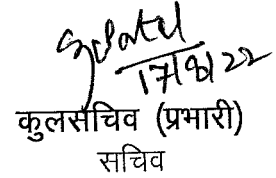 17/8/22
कुलसचिव (प्रभारी)
सचिव